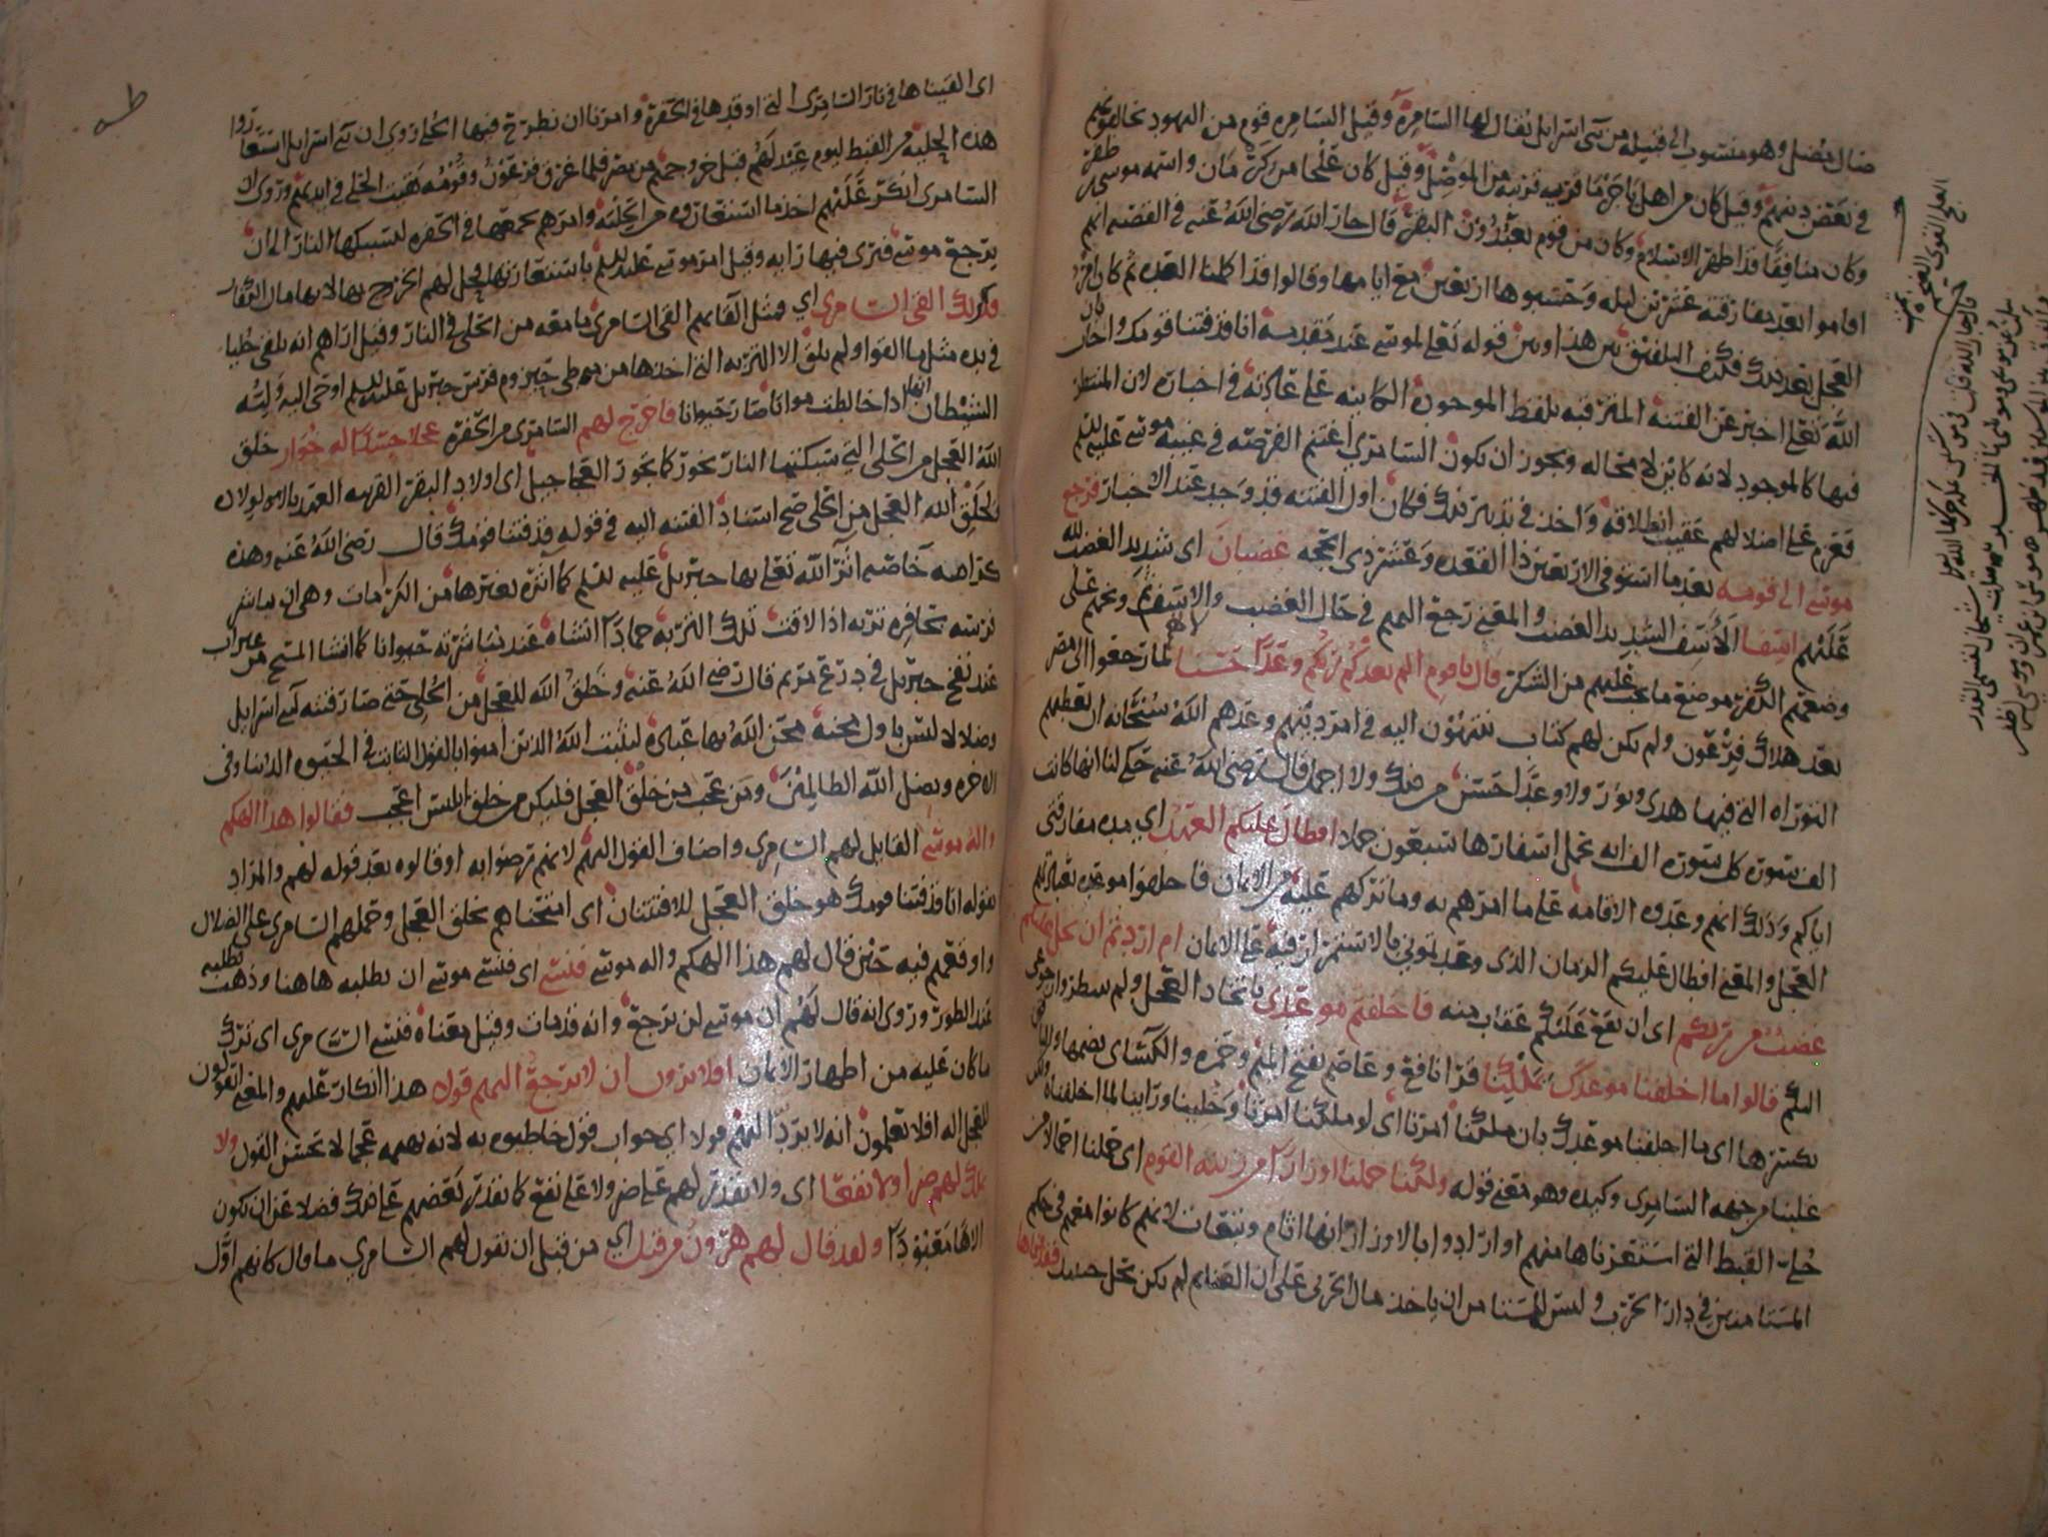 ضال مضل وهو منسوب الى قبيله من بنى اسرايل يقال لها السامرة وقيل السامره قوم من اليهود يخالفونهم
في بعض دينهم وقيل كان من اهل باجرما قريه قريبه من الموصل وقيل كان علجا من كرمان واسمه موسى بن ظفر
وكان منافقا قد اظهر الاسلام وكان من قوم يعبدون البقر قال جار الله رضى الله عنه في القصه انهم
اقاموا بعد مفارقته عشرين ليله وحسبوها اربعين مع ايامها وقالوا قد اكملنا العده ثم كان امر
العجل بعد ذلك فكيف التلفيق بين هذا وبين قوله تعلى لموسى عند مقدمه انا قد فتنا قومك واجاب بان
الله تعلى اخبر عن الفتنة المترقبه بلفظ الموجودة الكاينه على عادته في اخباره لان المنتظر
فيها كالموجود لانه كاين لا محاله ويجوز ان يكون السامري اغتنم الفرصه في غيبه موسى عليه السلم
فعزم على اضلالهم عقيب انطلاقه واخذ في تدبير ذلك فكان اول الفتنه قد وجد عند الاخبار فرجع
موسى الى قومه بعد ما استوفى الاربعين ذا القعده وعشر ذى الحجه غضبان اى شديد الغضب لله
عليهم اسفا الاسف الشديد الغضب والمعنى رجع اليهم في حال الغضب والاسف وبخهم على
وضعهم الكفر موضع ما يجب عليهم من الشكر قال يا قوم الم يعدكم ربكم وعدا حسنا لما رجعوا الى مصر
بعد هلاك فرعون ولم يكن لهم كتاب ينتهون اليه في امر دينهم وعدهم الله سبحانه ان يعطيهم
التوراه التى فيها هدى ونور ولا وعد احسن من ذلك ولا اجمل قال رضى الله عنه حكى لنا انها كانت
الف سوره كل سوره الف ايه يحمل اسفارها سبعون جملا افطال عليكم العهد اي مده مفارقتى
اياكم وذلك انهم وعدوه الاقامه على ما امرهم به وما تركهم عليه من الايمان فاخلفوا موعده بعبادتهم
العجل والمعنى افطال عليكم الزمان الذى وعدتمونى بالاستمرار فيه على الايمان ام اردتم ان يحل عليكم
غضب من ربكم اى ان يقع عليكم عقاب منه فاخلفتم موعدى باتخاذ العجل ولم تنظروا رجوعى
اليكم قالوا ما اخلفنا موعدك بملكنا قرا نافع وعاصم بفتح الميم وحمزه والكسائى بضمها والباقون
بكسرها اى ما اخلفنا موعدك بان ملكنا امرنا اى لو ملكنا امرنا وخلينا وراينا لما اخلفناه ولكن
غلبنا من جهه السامرى وكيده وهو معنى قوله ولكنا حملنا اوزارا من زينه القوم اى حملنا احمالا من
حلى القبط التى استعرناها منهم او ارادوا بالاوزار انها اثام وتبعات لانهم كانوا معهم في حكم
المستامنين في دار الحرب وليس للمستامن ان ياخذ مال الحربى على ان الغنايم لم تكن تحل حينيذ فقذفناها
اى القيناها في نار السامرى التى اوقدها في الحفرة وامرنا ان نطرح فيها الحلى روي ان بنى اسرايل استعاروا
هذه الحليه من القبط ليوم عيد لهم قبل خروجهم من مصر فلما غرق فرعون وقومه بقيت الحلى في ايديهم وروى ان
السامرى انكر عليهم اخذ ما استعاروه من الحليه وامرهم بجمعها في الحفره ليسبكها النار الى ان
يرجع موسى فيرى فيها رايه وقيل امر موسى عليه السلم باستعارتها
فكذلك القى السامرى اي مثل القايهم القى السامرى ما معه من الحلى في النار وقيل اراهم انه يلقى حليا
في يده مثل ما القوا ولم يلق الا التربه التى اخذها من موطى حيزوم فرس جبريل عليه السلم اوحى اليه وليه
الشيطان انها اذا خالطت مواتا صار حيوانا فاخرج لهم السامرى من الحفره عجلا جسدا له خوار خلق
الله العجل من الحلى التى سبكتها النار يخور كما يخور العجاجيل اى اولاد البقر
لخلق الله العجل من الحلى صح اسناد الفتنه اليه في قوله قد فتنا قومك قال رضى الله عنه وهذه
كرامه خاصه اثر الله تعلى بها جبريل عليه السلم كما اثره بغيرها من الكرامات وهى ان يباشر
تربته بحافره تربه اذا لاقت تلك التربه جمادا انشاه عند مباشرته حيوانا كما انشا المسيح من غير اب
عند نفخ جبريل في درع مريم قال رضى الله عنه وخلق الله للعجل من الحلى حتى صار فتنه لبنى اسرايل
وضلالا ليس باول محنه محن الله بها عباده ليثبت الله الذين امنوا بالقول الثابت في الحيوه الدنيا وفى
الاخره ويضل الله الظالمين ومن عجب من خلق العجل فليكن من خلق ابليس اعجب فقالوا هذا الهكم
واله موسى القايل لهم السامرى واضاف القول اليهم لانهم رضوا به او قالوه بعد قوله لهم والمراد
بقوله انا قد فتنا قومك هو خلق العجل للافتتان اى امتحناهم بخلق العجل وحملهم السامرى على الضلال
واوقعهم فيه حين قال لهم هذا الهكم واله موسى فنسى اى فنسى موسى ان يطلبه هاهنا وذهب يطلبه
عند الطور وروى انه قال لهم ان موسى لن يرجع وانه قد مات وقيل معناه فنسى السامرى اى ترك
ما كان عليه من اظهار الايمان افلا يرون ان لا يرجع اليهم قولا هذا انكار عليهم والمعنى اتقولون
للعجل اله افلا تعلمون انه لا يرد اليهم قولا اى جواب قول خاطبوه به لانه بهيمه عجما لا تحسن القول ولا
يملك لهم ضرا ولا نفعا اى ولا يقدر لهم على ضر ولا على نفع كما يقدر بعضهم على ذلك فضلا عن ان يكون
الاها معبودا ولقد قال لهم هرون من قبل اى من قبل ان يقول لهم السامري ما قال كانهم اول